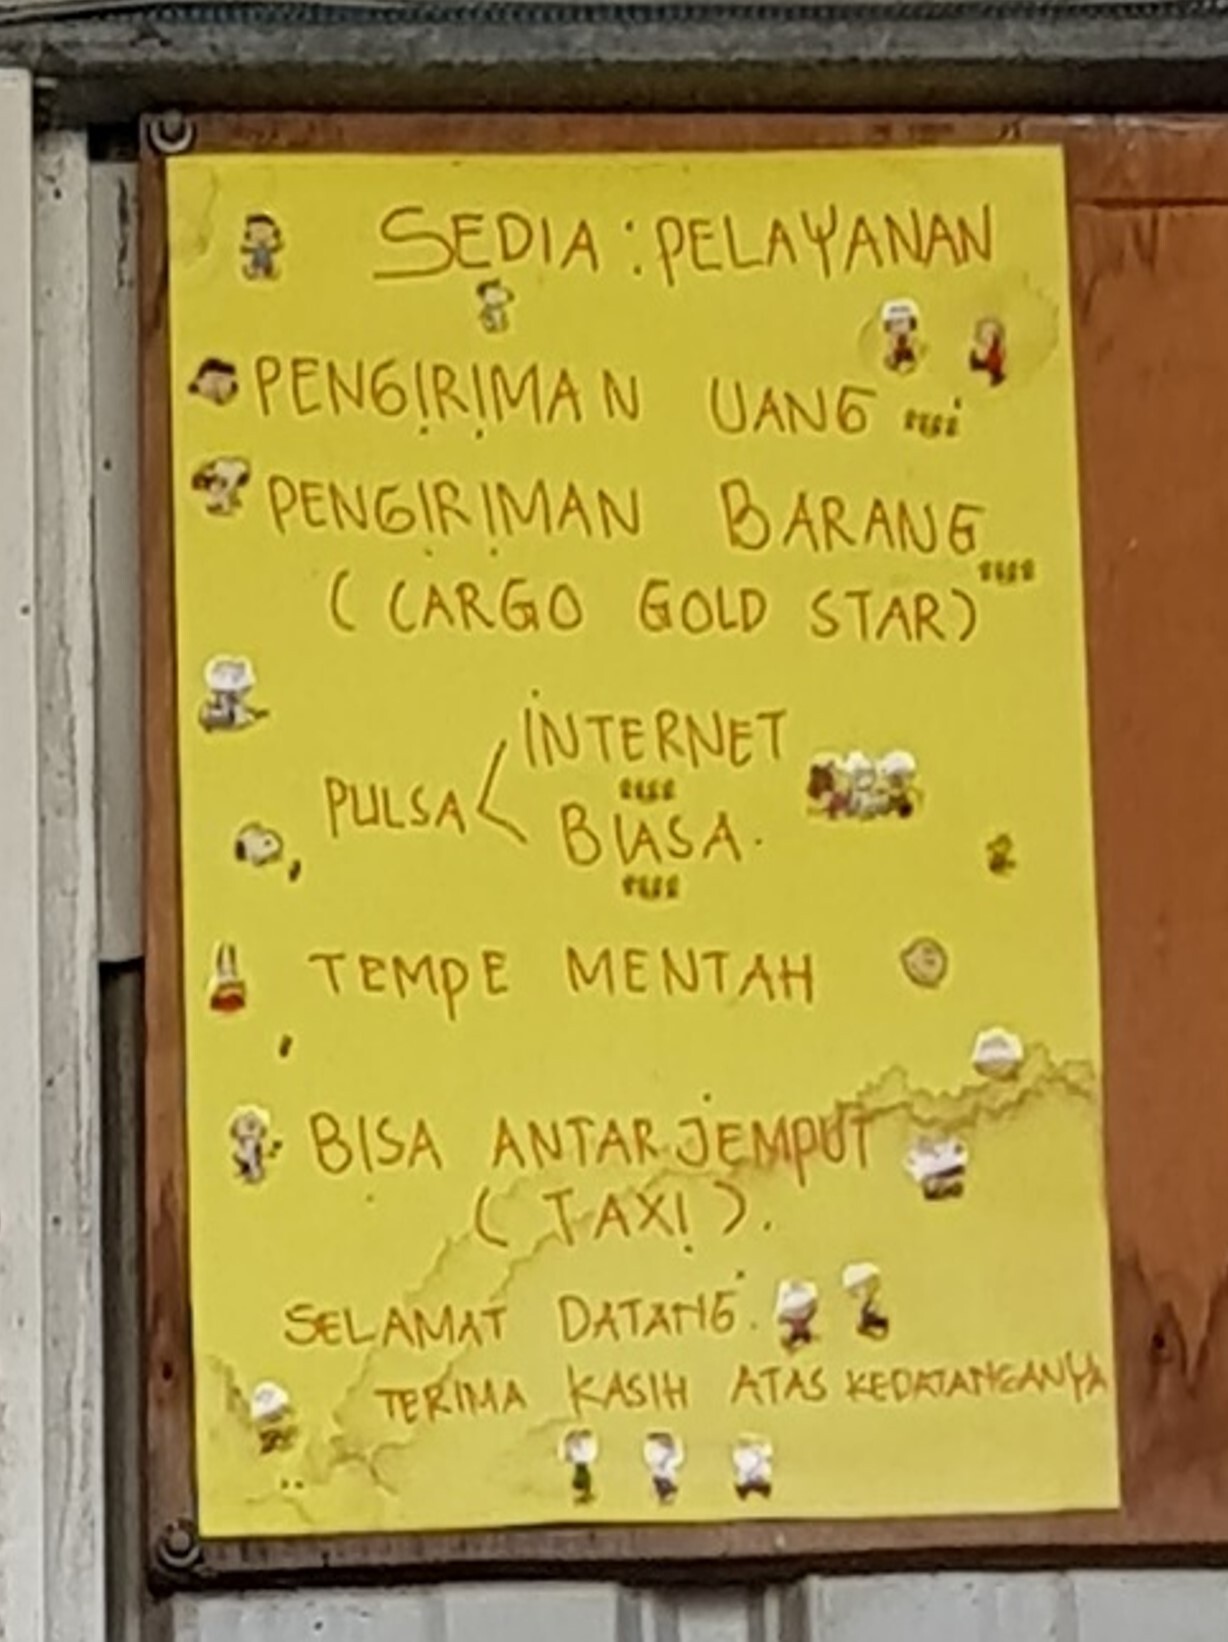 SEDIA : PELAYANAN
PENGIRIMAN UANG
PENGIRIMAN BARANG
( CARGO GOLD STAR )
PULSA < INTERNET
BIASA.
TEMPE MENTAH
BISA ANTAR JEMPUT
( TAXI ).
SELAMAT DATANG.
TERIMA KASIH ATAS KEDATANGANYA